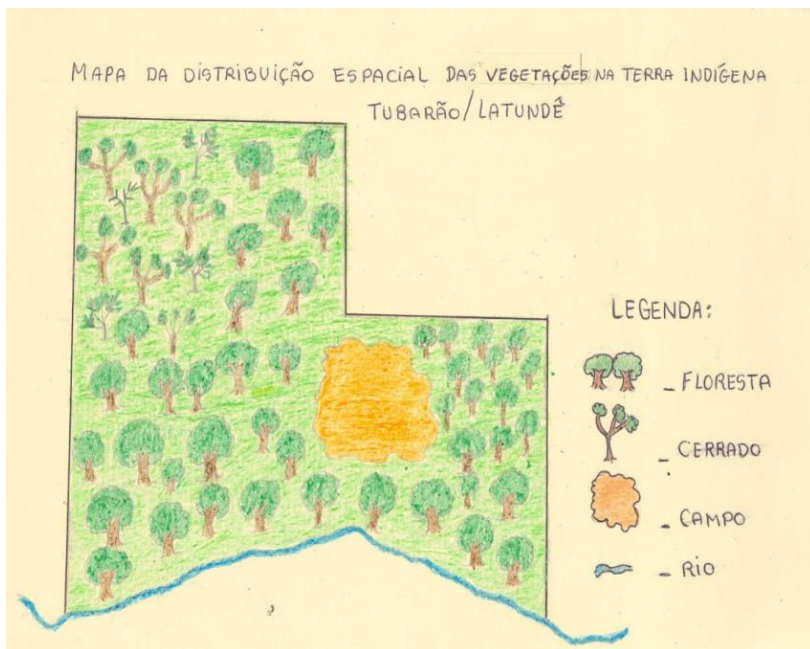 MAPA DA DISTRIBUIÇÃO ESPACIAL DAS VEGETAÇÕES NA TERRA INDÍGENA
TUBARÃO/LATUNDÊ
LEGENDA:
- FLORESTA
- CERRADO
- CAMPO
- RIO